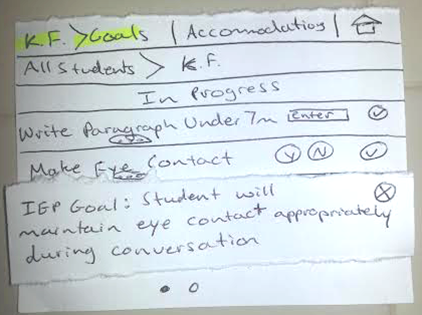 K.F. > Goals | Accommodations |
All Students > K.F.
In Progress
Write Paragraph Under 7m Enter
Make Eye Contact Y N
IEP Goal: Student will X
maintain eye contact appropriately
during conversation